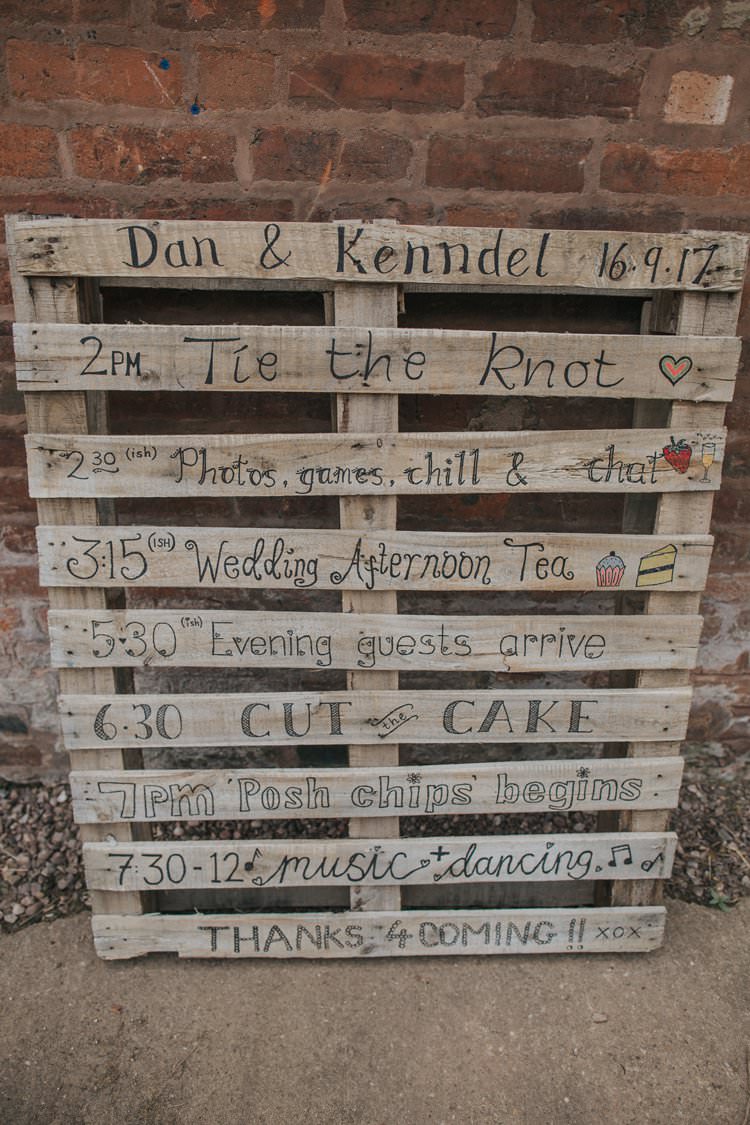 Dan & Kenndel 16.9.17
2PM Tie the Knot
2 30 (ish) Photos, games, chill & chat
3:15 (ISH) Wedding Afternoon Tea
5.30 (ish) Evening guests arrive
6.30 CUT the CAKE
7pm 'Posh chips' begins
7:30-12 music + dancing.
THANKS 4 COMING!! xox